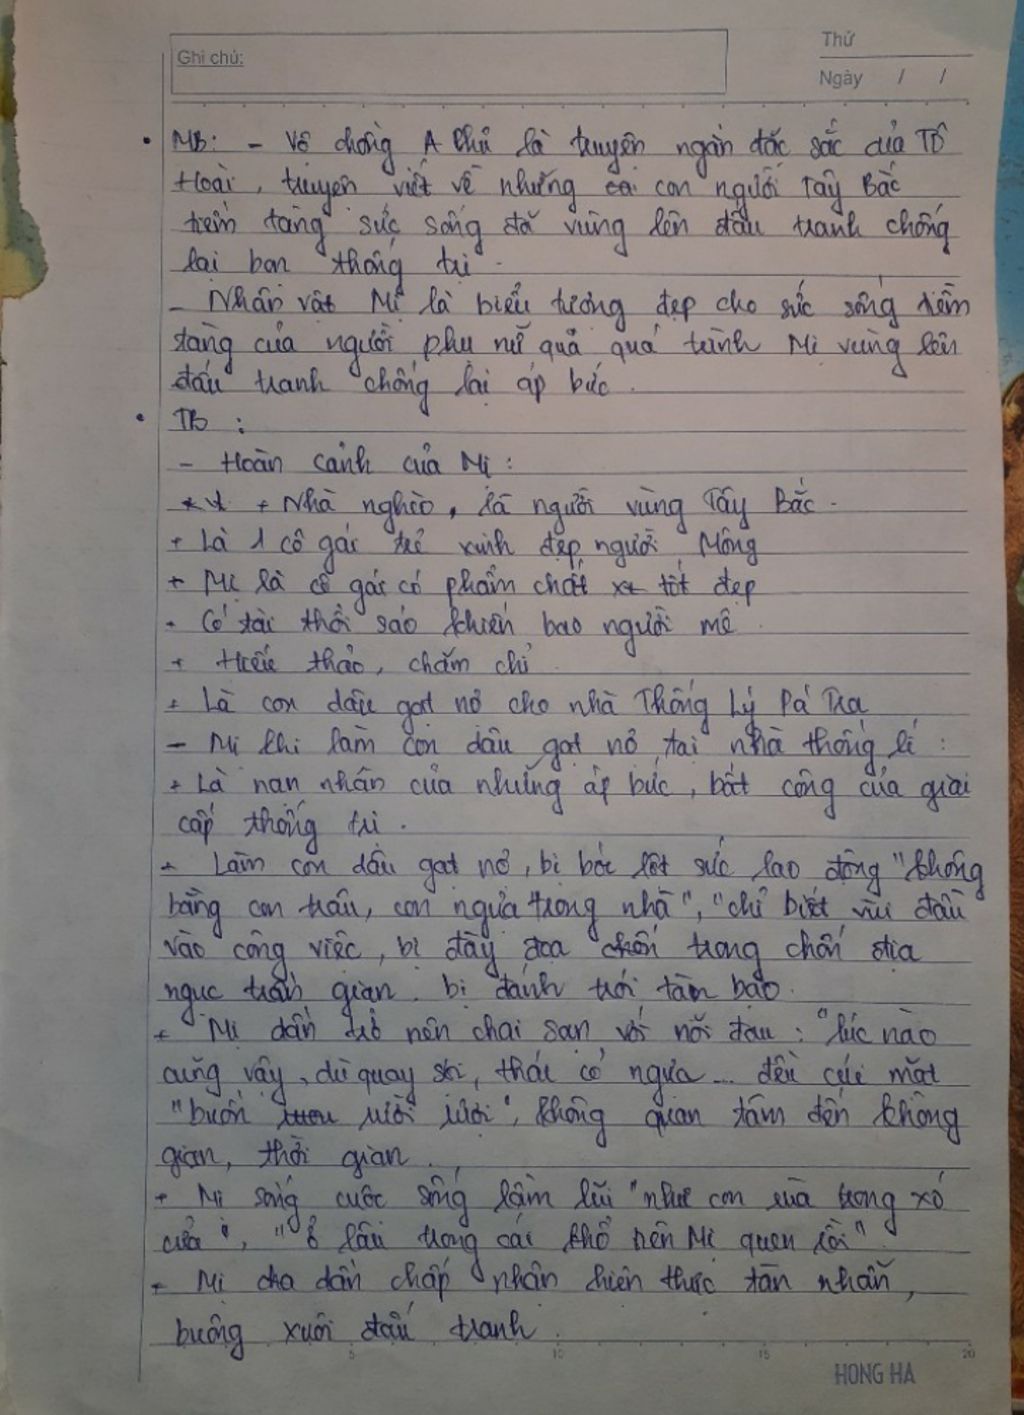 Ghi chú:
Thứ
Ngày / /
• MB: - Vợ chồng A Phủ là truyện ngắn đặc sắc của Tô
Hoài, truyện viết về những con người Tây Bắc
tiềm tàng sức sống đã vùng lên đấu tranh chống
lại bọn thống trị.
- Nhân vật Mị là biểu tượng đẹp cho sức sống tiềm
tàng của người phụ nữ quả quá trình Mị vùng lên
đấu tranh chống lại áp bức.
• TB :
- Hoàn cảnh của Mị :
+ Nhà nghèo, là người vùng Tây Bắc.
+ Là 1 cô gái trẻ xinh đẹp người Mông
+ Mị là cô gái có phẩm chất tốt đẹp
+ Có tài thổi sáo khiến bao người mê.
+ Hiếu thảo, chăm chỉ.
+ Là con dâu gạt nợ cho nhà Thống Lý Pá Tra
- Mị khi làm con dâu gạt nợ tại nhà thống lí :
+ Là nạn nhân của những áp bức, bất công của giai
cấp thống trị.
+ Làm con dâu gạt nợ, bị bóc lột sức lao động "không
bằng con trâu, con ngựa trong nhà", "chỉ biết vùi đầu
vào công việc, bị đày đọa trong chốn địa
ngục trần gian. bị đánh trói tàn bạo.
+ Mị dần trở nên chai sạn với nỗi đau : "lúc nào
cũng vậy, dù quay sợi, thái cỏ ngựa... đều cúi mặt
"buồn rười rượi", không quan tâm đến không
gian, thời gian.
+ Mị sống cuộc sống lầm lũi "như con rùa trong xó
cửa", "ở lâu trong cái khổ nên Mị quen rồi"
+ Mị dần chấp nhận hiện thực tàn nhẫn,
buông xuôi đấu tranh.
5 10 15 20
HONG HA